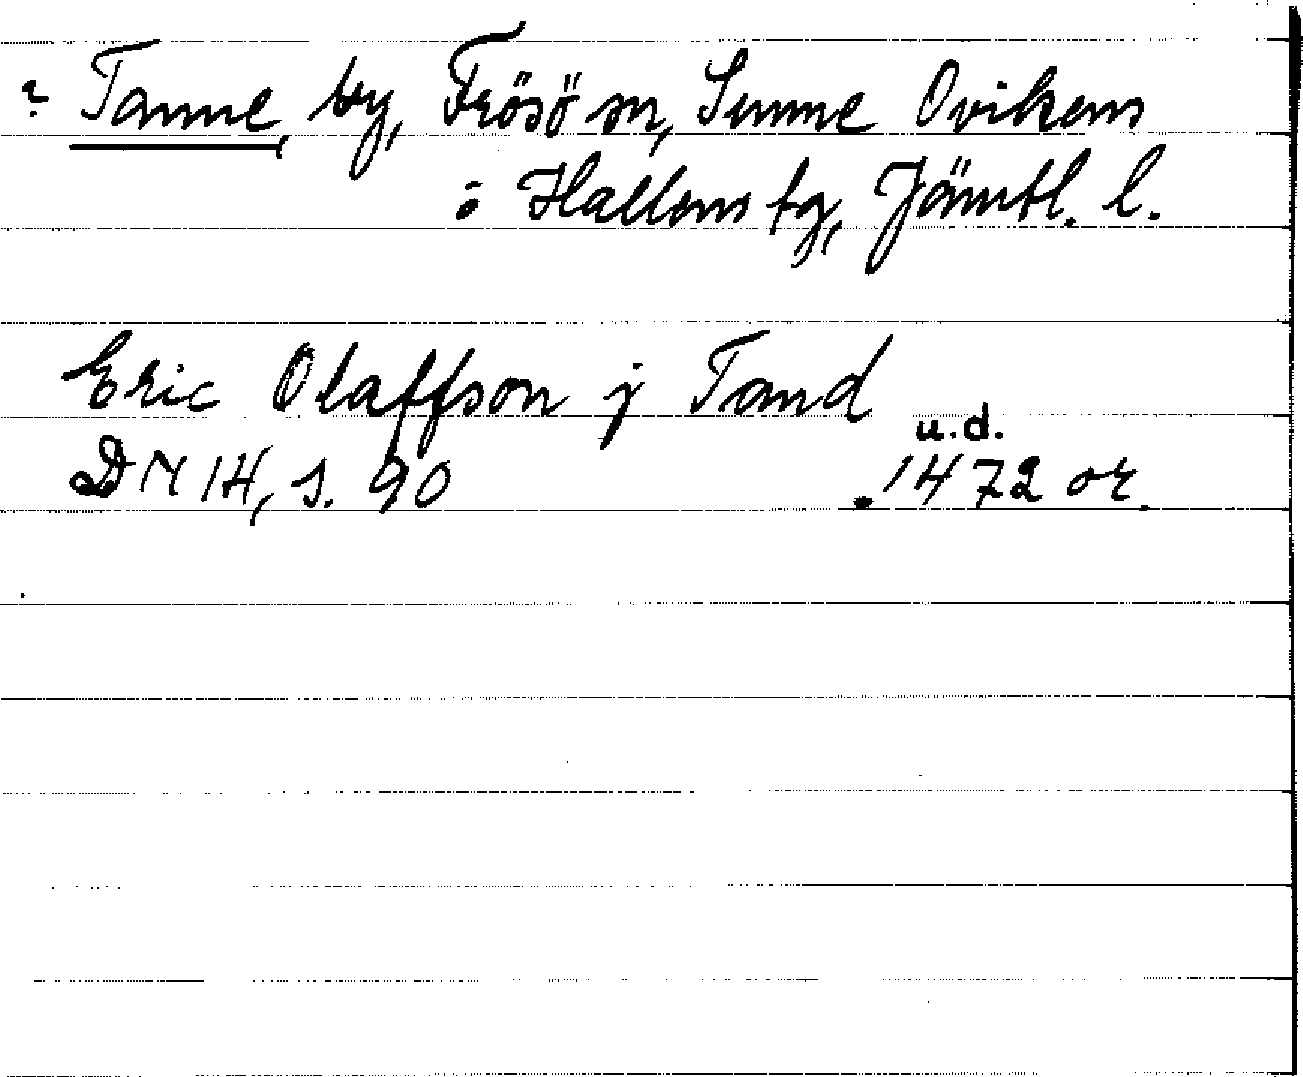 ? Tanne, by, Frösö sn, Sunne Ovikens
o Hallens tg, Jämtl. l.
Eric Olaffson j Tand
u.d.
DN 14, s. 90 1472 or.